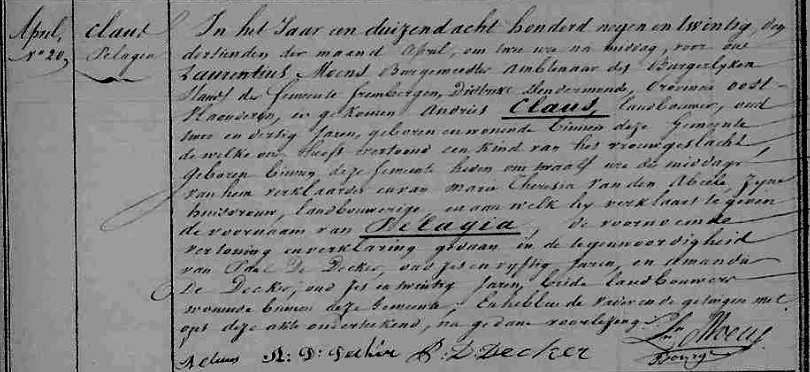 April,
N° 20,
Claus
Pelagia
In het Jaar een duizend acht honderd negen en twintig, den
dertienden der maand April, om twee ure na middag, voor ons
Laurentius Moens Burgemeester Ambtenaar des Burgerlyken
Stands der Gemeente Grembergen, Distrikt Dendermonde, Provincie oost-
Vlaanderen, is gekomen Andries Claus, landbouwer, oud
twee en dertig Jaren, geboren en wonende binnen deze Gemeente
de welke ons heeft vertoond een kind van het vrouwgeslacht,
geboren binnen deze Gemeente heden om twaalf ure des middags
van hem verklaarder en van Marie Theresia Van den Abeele, Zyne
huisvrouw, landbouwerige en aan welk hy verklaart te geven
de voornaam van Pelagia, de voornoemde
vertoning en verklaring gedaan in de tegenwoordigheid
van Paul De Decker, oud zes en vyftig Jaren, en Amandus
De Decker, oud zes en twintig Jaren, beide landbouwers
wonende binnen deze Gemeente; En hebben de Vader en de getuigen met
ons deze akte onderteekend, na gedane voorlezing.
A Claus P. D. Decker Moens
Bourg